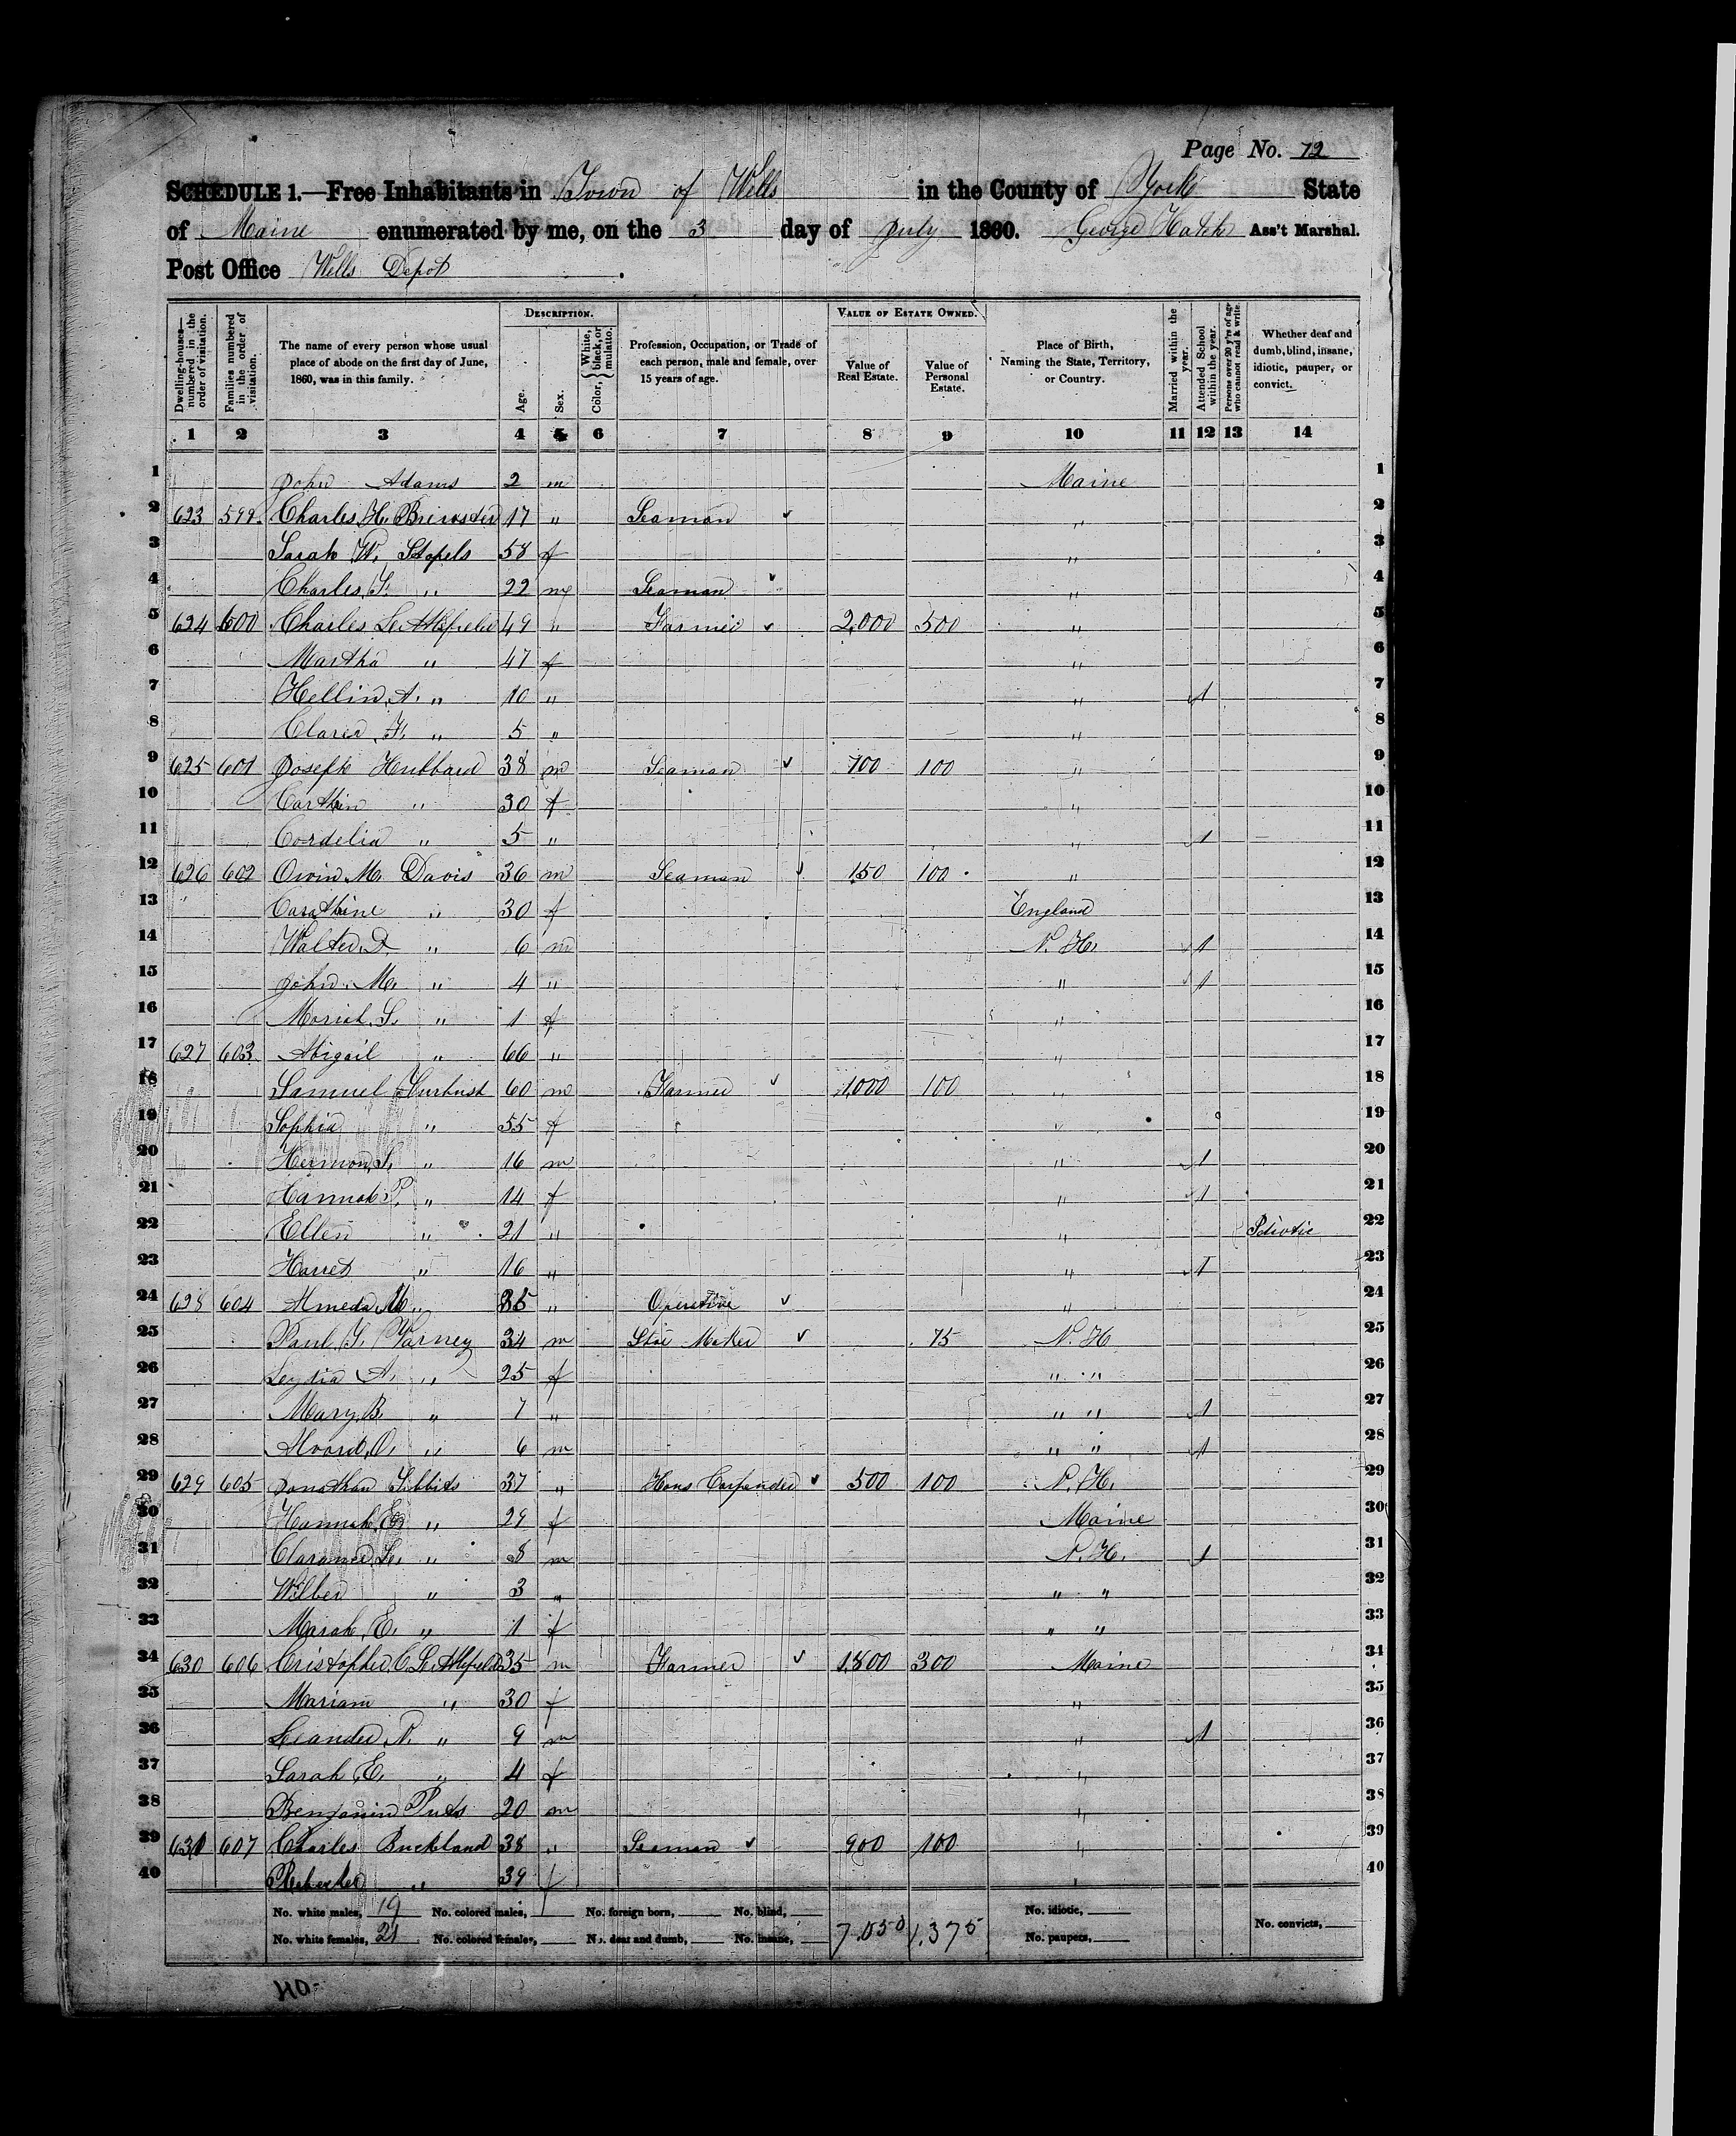 Page No. 72
SCHEDULE 1.—Free Inhabitants in Town of Wells in the County of York State
of Maine enumerated by me, on the 3 day of July 1860. George Hatch Ass't Marshal.
Post Office Wells Depot.
Dwelling-houses—numbered in the order of visitation.
Families numbered in the order of visitation.
The name of every person whose usual place of abode on the first day of June, 1860, was in this family.
DESCRIPTION.
Age.
Sex.
Color, { White, black, or mulatto.
Profession, Occupation, or Trade of each person, male and female, over 15 years of age.
VALUE OF ESTATE OWNED.
Value of Real Estate.
Value of Personal Estate.
Place of Birth, Naming the State, Territory, or Country.
Married within the year.
Attended School within the year.
Persons over 20 y'rs of age who cannot read & write.
Whether deaf and dumb, blind, insane, idiotic, pauper, or convict.
1 2 3 4 5 6 7 8 9 10 11 12 13 14
1 John Adams 2 m Maine 1
2 623 599 Charles H. Brewster 17 " Seaman " 2
3 Sarah W. Stapels 58 f " 3
4 Charles F. " 22 m Seaman " 4
5 624 600 Charles Littlefield 49 " Farmer 2,000 500 " 5
6 Martha " 47 f " 6
7 Hellin A. " 10 " " 1 7
8 Clara F. " 5 " " 8
9 625 601 Joseph Hubbard 38 m Seaman 700 100 " 9
10 Carthin " 30 f " 10
11 Cordelia " 5 " " 1 11
12 626 602 Orvin M. Davis 36 m Seaman 150 100 " 12
13 Carathine " 30 f England 13
14 Walter D. " 6 m N. H. 1 14
15 John M. " 4 " " 1 15
16 Moriah S. " 1 f " 16
17 627 603 Abigail " 66 " " 17
18 Samuel Furbush 60 m Farmer 1,000 100 " 18
19 Sophia " 55 f " 19
20 Hermon S. " 16 m " 1 20
21 Hannah P. " 14 f " 1 21
22 Ellen " 21 " " Idiotic 22
23 Harret " 16 " " 1 23
24 628 604 Almeda M. " 35 " Operative " 24
25 Paul G. Varney 34 m Shoe Maker 75 N. H. 25
26 Leydia A. " 25 f " " 26
27 Mary B. " 7 " " " 1 27
28 Alvord O. " 6 m " " 1 28
29 629 605 Jonathan Tibbits 37 " Hous Carpender 500 100 N. H. 29
30 Hannah E. " 29 f Maine 30
31 Clarance L. " 8 m N. H. 1 31
32 Wilber " 3 " " " 32
33 Marah E. " 1 f " " 33
34 630 606 Cristopher C. Littlefield 35 m Farmer 1,800 300 Maine 34
35 Mariam " 30 f " 35
36 Leander N. " 9 m " 1 36
37 Sarah E. " 4 f " 37
38 Benjamin 20 m " 38
39 631 607 Charles Buckland 38 " Seaman 900 100 " 39
40 " 39 f " 40
No. white males, 19 No. colored males, No. foreign born, No. blind, No. idiotic,
No. white females, 21 No. colored females, No. deaf and dumb, No. insane, 7,050 1,375 No. paupers, No. convicts,
40-